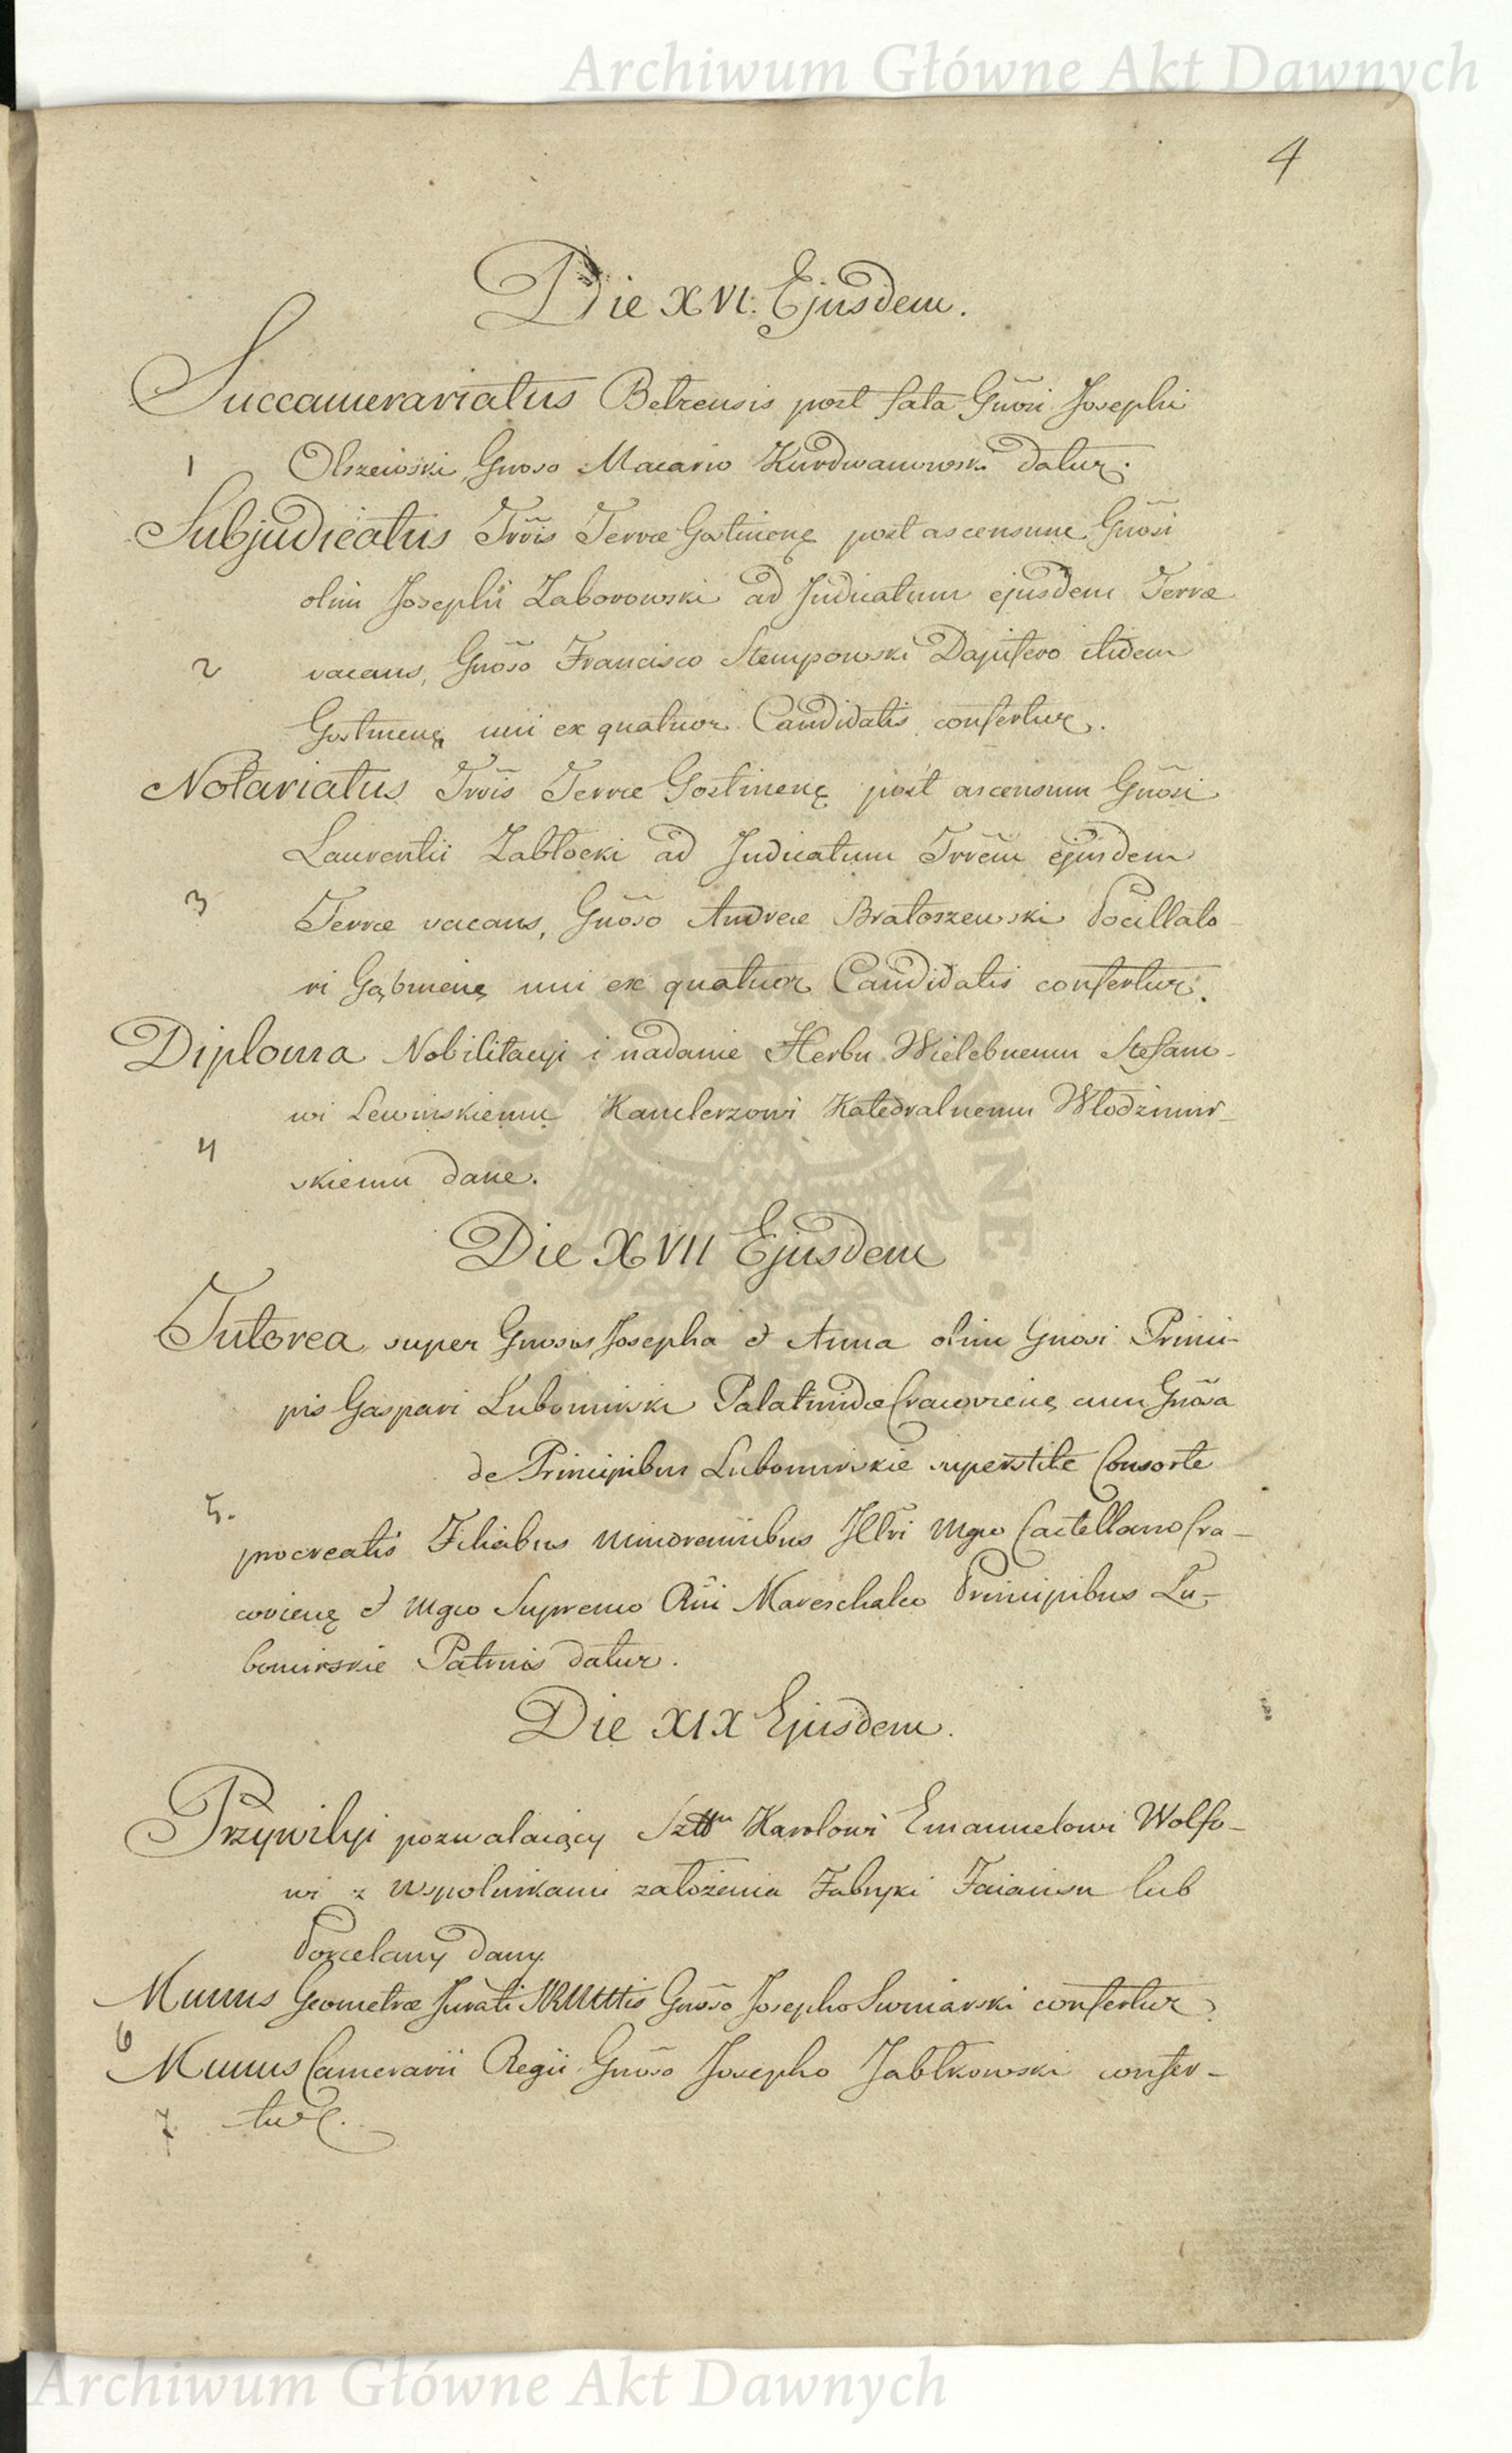 Archiwum Główne Akt Dawnych
4
Die XVI. Ejusdem.
Succamerariatus Betzensis post fata Gnõsi Josephi
1 Olszewski, Gnoso Macario Kurdwanowski datur.
Subjudicatus Trr̃is Terræ Gostinenę post ascensum Gnõsi
olim Josephi Zaborowski ad Judicatum ejusdem Terræ
2 vacans, Gnõso Francisco Stempowski Dapifero itidem
Gostinenę uni ex quatuor Candidatis confertur.
Notariatus Trr̃is Terræ Gostinenę post ascensum Gnõsi
Laurentii Zabłocki ad Judicatum Trr̃em ejusdem
3 Terræ vacans, Gnõso Andreæ Bratoszewski Pocillato-
ri Gąbinenę uni ex quatuor Candidatis confertur.
Diploma Nobilitacyi i nadanie Herbu Wielebnemu Stefano-
wi Lewinskiemu Kanclerzowi Katedralnemu Włodzimir-
4
skiemu dane.
Die XVII Ejusdem
Tutorea super Gnosis Josepha et Anna olim Gnosi Princi-
pis Gaspari Lubomirski Palatinidæ Cracovienę cum Gnõsa
de Principibus Lubomirskie superstite Consorte
5.
procreatis Filiabus minorennibus Illri Mgco Castellano Cra-
covienę et Mgco Supremo Rñi Mareschalco Principibus Lu-
bomirskie Patruis datur.
Die XIX Ejusdem.
Przywilyi pozwalaiący Karolowi Emanuelowi Wolfo-
wi z wspolnikami założenia Fabryki Faiansu lub
Porcelany dany.
Munus Geometræ Jurati Gnõso Josepho Swiniarski confertur.
6
Munus Camerarii Regii Gnõso Josepho Jabłkowski confer-
7 tur.
Archiwum Główne Akt Dawnych